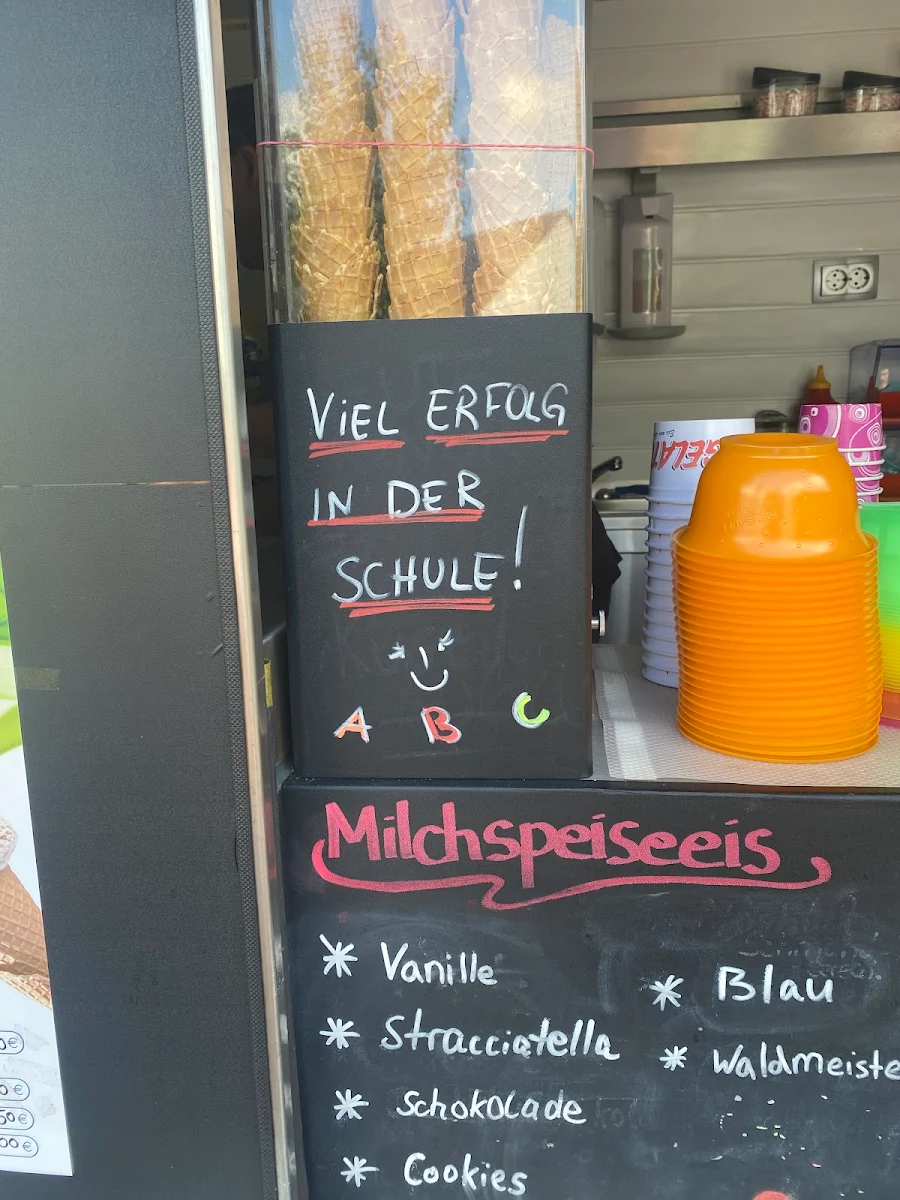 VIEL ERFOLG
IN DER
SCHULE!
A B C
GELAT
Milchspeiseeis
* Vanille
* Stracciatella
* Schokolade
* Cookies
* Blau
* Waldmeiste
0€
0€
50€
00€